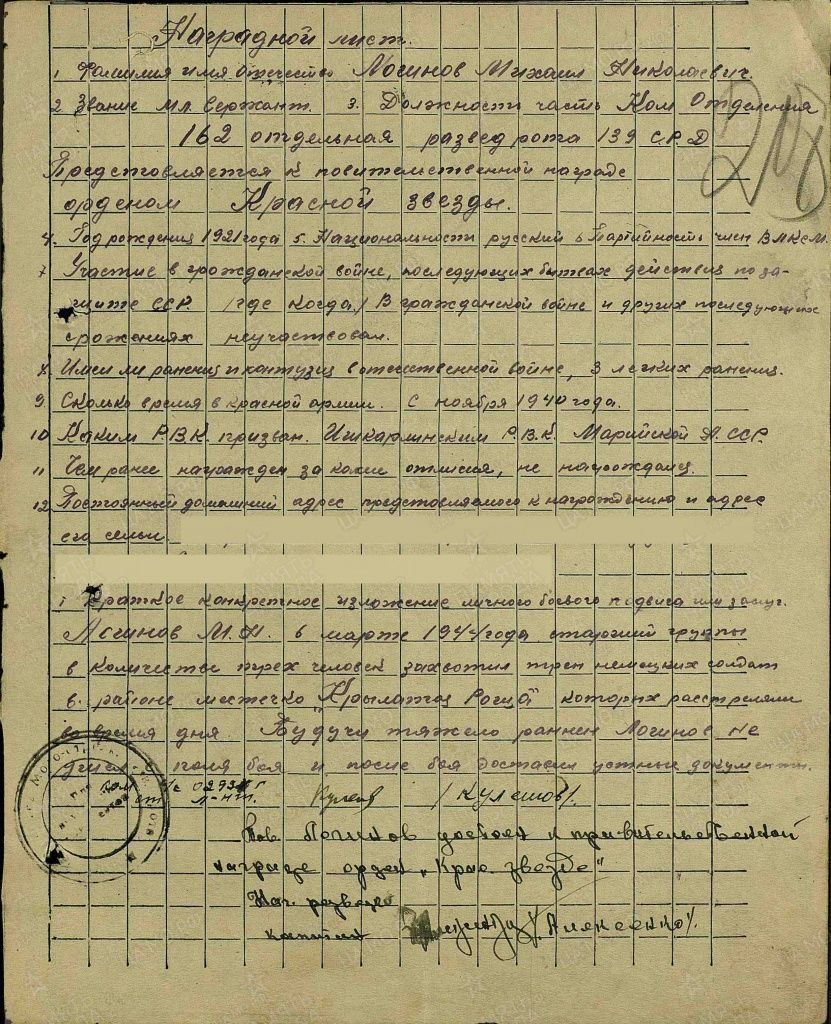 Наградной лист.
1 Фамилия имя отчество Логинов Михаил Николаевич.
2 Звание мл. сержант. 3. Должность часть Ком Отделения
162 отдельная развед рота 139 С.Р.Д
Представляется к правительственной награде
орденом Красной звезды.
4. Год рождения 1921 года 5. Национальность русский 6 Партийность член ВЛКСМ.
7 Участие в гражданской войне, последующих битвах действиях по за-
щите ССР. /где когда/ В гражданской войне и других последующих
сражениях неучаствовал.
8 Имел ли ранения и контузия в отечественной войне, 3 легких ранения.
9. Сколько время в красной армии. С ноября 1940 года.
10 Каким Р.В.К. призван. Р.В.К. Марийской А.ССР.
11 Чем ранее награжден за какие отличия, не награждался.
12 Постоянный домашний адрес представляемого к награждению и адрес
его семьи.
1 Краткое конкретное изложение личного боевого подвига или заслуг.
Логинов М.Н. в марте 1944 года старший группы
в количестве трех человек захватил трех немецких солдат
в районе местечко "Крылатая Роща" которых расстреляли
во время дня. Будучи тяжело раннен Логинов не
поля боя и после боя доставил документы.
ст. л-нт. /Кулешов/.
Тов. Логинов достоен к правительственной
награде орден "Крас. звезде"
Нач. разведки
капитан /Алексеенко/.